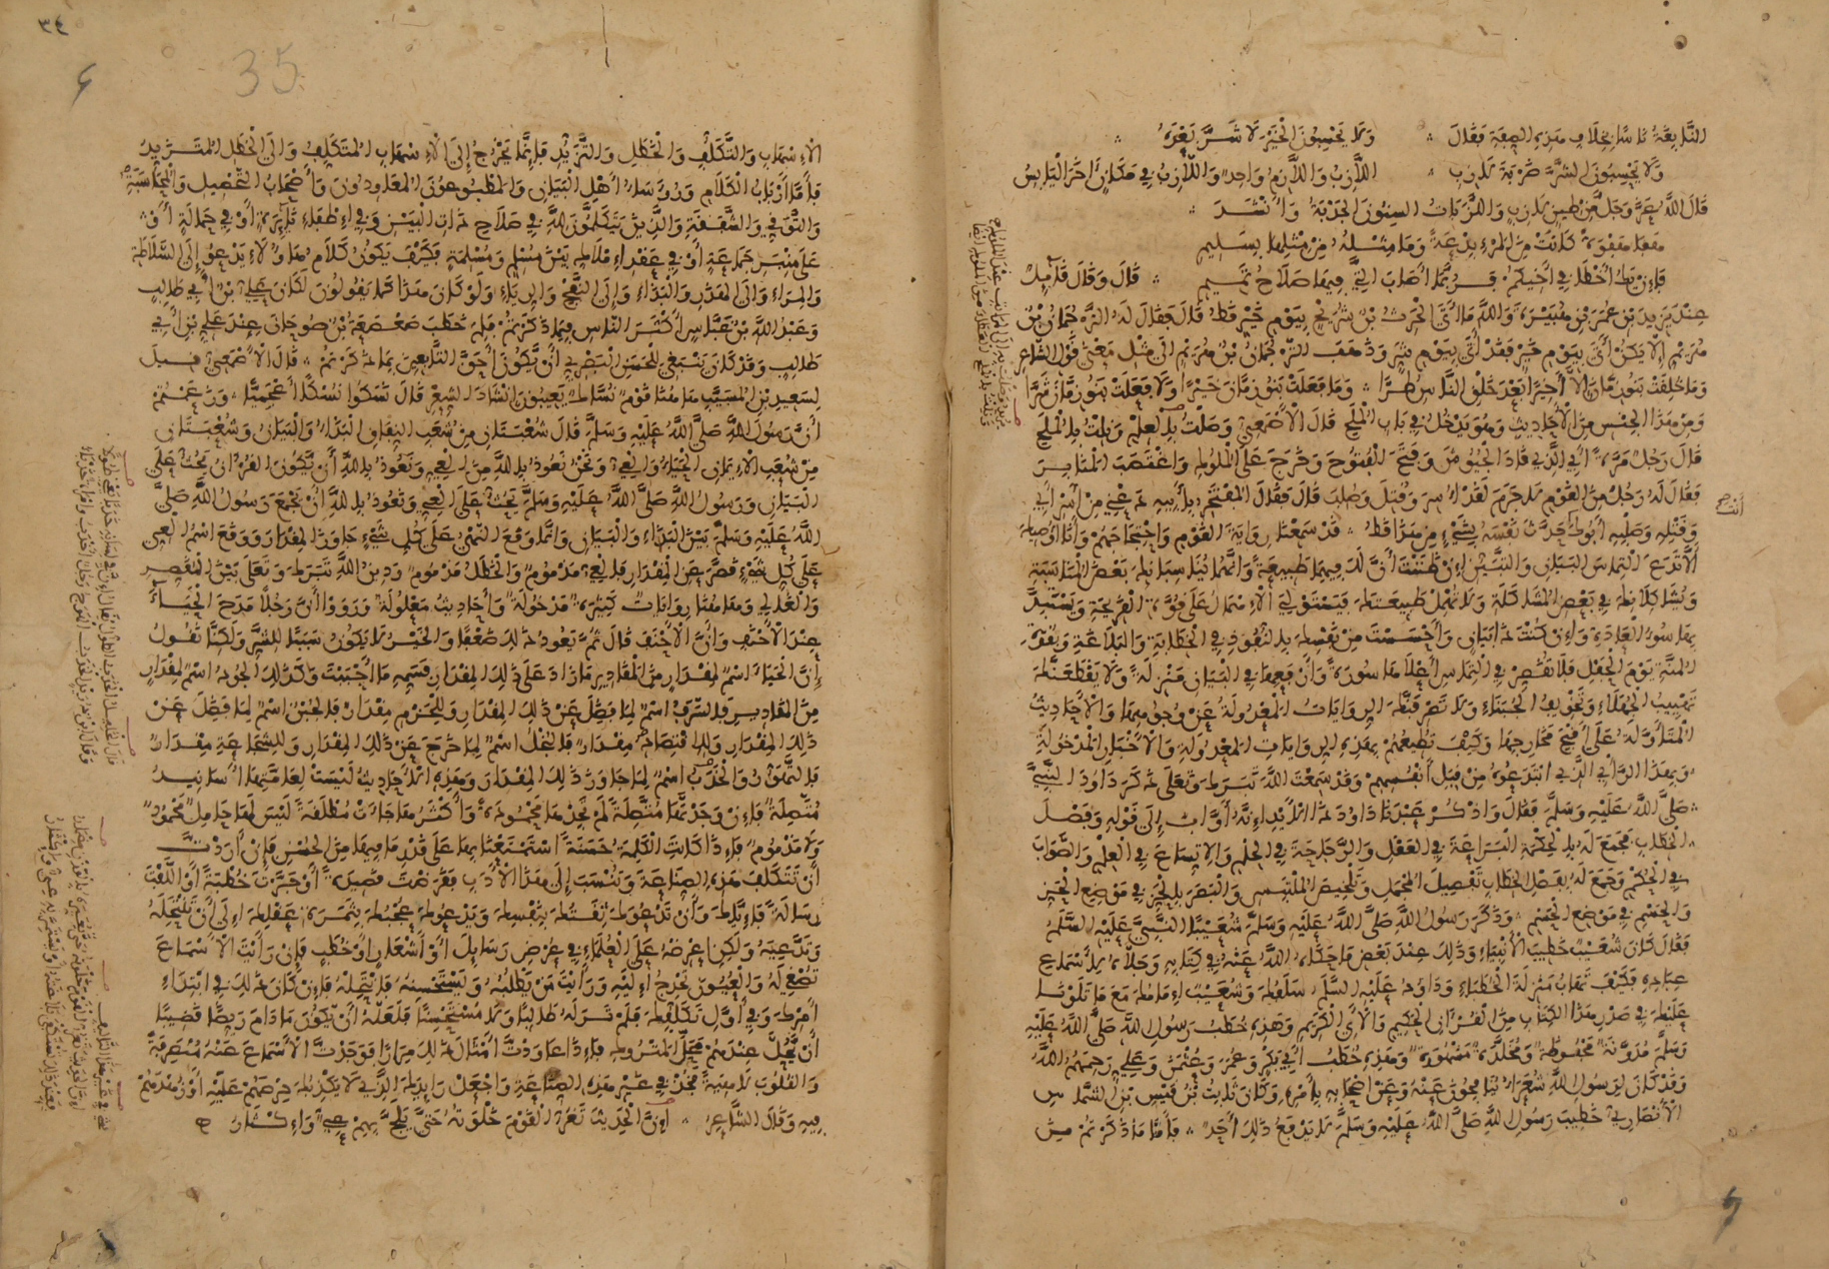 النابغة ناسا بخلاف هذه الصفة فقال ∴ ولا يحسبون الخير لا شر بعده ∴
ولا يحسبون الشر ضربة لازب ∴ اللازب واللازم واحد واللازب في مكان آخر اليابس
قال الله عز وجل من طين لازب واللزبات السنون الجدبة وأنشد ∴
هفا هفوة كانت من المرء بدعة وما مثله من مثلها بسليم
فإن يك أخطا في أخيكم فربما أصاب التي فيها صلاح تميم ∴ قال وقال قائل
عند يزيد بن عمر بن هبيرة والله ما أتى الحرث بن شريح بيوم خير قط قال فقال له الترجمان بن
هريم إلا يكن أتى بيوم خير فقد أتى بيوم شر وذهب الترجمان بن هريم إلى مثل معنى قول الشاعر
وما خلقت بنو زمان إلا أخيرا بعد خلق الناس طرا ∴ وما فعلت بنو زمان خيرا ولا فعلت بنو زمان شرا
ومن هذا الجنس من الأحاديث وهو يدخل في باب الملح قال الأصمعي وصلت بالعلم ونلت بالملح
قال رجل مرة أبي الذي قاد الجيوش وفتح الفتوح وخرج على الملوك واغتصب المنابر
فقال له رجل من القوم لا جرم لقد أسر وقتل وصلب قال فقال المفتخر بأبيه دعني من أسر أبي
وقتله وصلبه أبوك حدث نفسه بشيء من هذا قط ∴ قد سمعنا رواية القوم واحتجاجهم وأنا أوصيك
ألا تدع التماس البيان والتبين إن ظننت أن لك فيهما طبيعة وأنهما يناسبانك بعض المناسبة
ويشاكلانك في بعض المشاكلة ولا تهمل طبيعتك فيستولي الإهمال على قوة القريحة ويستبد
بها سوء العادة وإن كنت ذا بيان وأحسست من نفسك بالنفوذ في الخطابة والبلاغة وبقوة
المنة يوم الحفل فلا تقصر في التماس أعلاها سورة وأرفعها في البيان منزلة ولا يقطعنك
تهييب الجهلاء وتخويف الجبناء ولا تصرفنك الروايات المعدولة عن وجوهها والأحاديث
المتأولة على أقبح مخارجها وكيف تطيعهم بهذه الروايات المعدولة والأخبار المدخولة
وبهذا الرأي الذي ابتدعوه من قبل أنفسهم وقد سمعت الله تبرك وتعلى ذكر داود النبي
صلى الله عليه وسلم فقال واذكر عبدنا داود ذا الأيد إنه أواب إلى قوله وفصل
الخطاب فجمع له بالحكمة البراعة في العقل والرجاجة في الحلم والاتساع في العلم والصواب
في الحكم وجمع له بفصل الخطاب تفصيل المجمل وتلخيص الملتبس والبصر بالحز في موضع الحز
والحسم في موضع الحسم ∴ وذكر رسول الله صلى الله عليه وسلم شعيبا النبي عليه السلم
فقال كان شعيب خطيب الأنبياء وذلك عند بعض ما حكاه الله عنه في كتابه وجلاه بأسماع
عباده فكيف تهاب منزلة الخطباء وداود عليه السلم سلفك وشعيب إمامك مع ما تلونا
عليك في صدر هذا الكتاب من القرآن الحكيم والآي الكريم وهذه خطب رسول الله صلى الله عليه
وسلم مدونة محفوظة ومخلدة مشهورة وهذه خطب أبي بكر وعمر وعثمن وعلي رحمهم الله
وقد كان لرسول الله شعراء ينافحون عنه وعن أصحابه بأمره وكان ثابت بن قيس بن الشماس
الأنصاري خطيب رسول الله صلى الله عليه وسلم لا يدفع ذلك أحد ∴ فأما ما ذكرتم من
أتت صح
٣٤
35
الإسهاب والتكلف والخطل والتزيد فإنما يخرج إلى الإسهاب المتكلف وإلى الخطل المتزيد
فأما أرباب الكلام ورؤساء أهل البيان والمطبوعون المعاودون وأصحاب التحصيل والمحاسبة
والتوقي والشفقة والذين يتكلمون في صلاح ذات البين وفي إطفاء نائرة أو في حمالة أو
على منبر جماعة أو في عقد إملاك بين مسلم ومسلمة فكيف يكون كلام هاولاء يدعو إلى السلاطة
والمراء وإلى الهذر والبذاء وإلى النفج والرياء ولو كان هذا كما يقولون لكان علي بن أبي طالب
وعبد الله بن عباس أكثر الناس فيما ذكرتم فلم خطب صعصعة بن صوحان عند علي بن أبي
طالب وقد كان ينبغي للحسن البصري أن يكون أحق التابعين بما ذكرتم ∴ قال الأصمعي قيل
لسعيد بن المسيب هاهنا قوم نساك يعيبون إنشاد الشعر قال نسكوا نسكا أعجميا ∴ وزعمتم
أن رسول الله صلى الله عليه وسلم قال شعبتان من شعب النفاق البذاء والبيان وشعبتان
من شعب الإيمان الحياء والعي ونحن نعوذ بالله من العي ونعوذ بالله أن يكون القرآن يحث على
البيان ورسول الله صلى الله عليه وسلم يحث على العي ونعوذ بالله أن يجمع رسول الله صلى
الله عليه وسلم بين البذاء والبيان وإنما وقع النهي على كل شيء جاوز المقدار ووقع اسم العي
على كل شيء قصر عن المقدار فالعي مذموم والخطل مذموم ودين الله تبرك وتعلى بين المقصر
والغالي وهاهنا روايات كثيرة مدخولة وأحاديث معلولة ورووا أن رجلا مدح الحياء
عند الأحنف وأن الأحنف قال ثم يعود ذلك ضعفا والخير لا يكون سببا للشر ولكنا نقول
إن الحياء اسم لمقدار من المقادير ما زاد على ذلك المقدار فسمه ما أحببت وكذلك الجود اسم لمقدار
من المقادير فالسرف اسم لما فضل عن ذلك المقدار وللحزم مقدار فالجبن اسم لما فضل عن
ذلك المقدار وللاقتصاد مقدار فالبخل اسم لما خرج عن ذلك المقدار وللشجاعة مقدار
فالتهور والخدب اسم لما جاوز ذلك المقدار وهذه الأحاديث ليست لعامتها أسانيد
متصلة فإن وجدتها متصلة لم تجدها محمودة وأكثرها جاءت مطلقة ليس لها حامل محمود
ولا مذموم فإذا كانت الكلمة حسنة استمتعنا بها على قدر ما فيها من الحسن فإن أردت
أن تتكلف هذه الصناعة وتنسب إلى هذا الأدب فقرضت قصيدة أو حبرت خطبة أو ألفت
رسالة فإياك وأن تدعوك ثقتك بنفسك ويدعوك عجبك بثمرة عقلك إلى أن تنتحله
وتدعيه ولكن اعرضه على العلماء في عرض رسايل أو أشعار أو خطب فإن رأيت الأسماع
تصغي له والعيون تحدج إليه ورأيت من يطلبه ويستحسنه فانتحله فإن كان ذلك في ابتداء
أمرك وفي أول تكلفك فلم تر له طالبا ولا مستحسنا فلعله أن يكون ما دام ريضا قضيبا
أن يحل عندهم محل المتروك فإذا عاودت أمثال ذلك مرارا فوجدت الأسماع عنه منصرفة
والقلوب لاهية فخذ في غير هذه الصناعة واجعل رايدك الذي لا يكذبك حرصهم عليه أو زهدهم
فيه وقال الشاعر ∴ إن الحديث تغر القوم خلوته حتى يلج بهم عي وإكثار